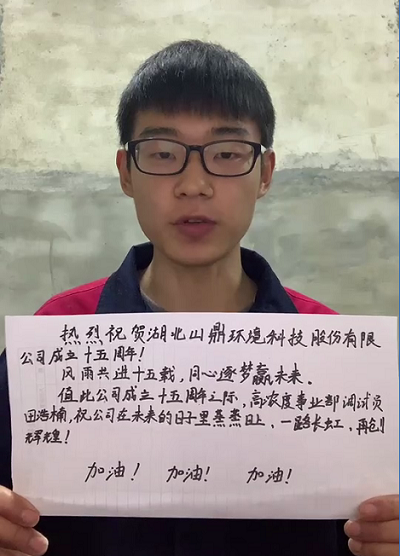 热烈祝贺湖北山鼎环境科技股份有限
公司成立十五周年!
风雨共进十五载,同心逐梦赢未来。
值此公司成立十五周年之际,高浓度事业部调试员
田浩楠,祝公司在未来的日子里蒸蒸日上,一路长虹,再创
辉煌!
加油! 加油! 加油!